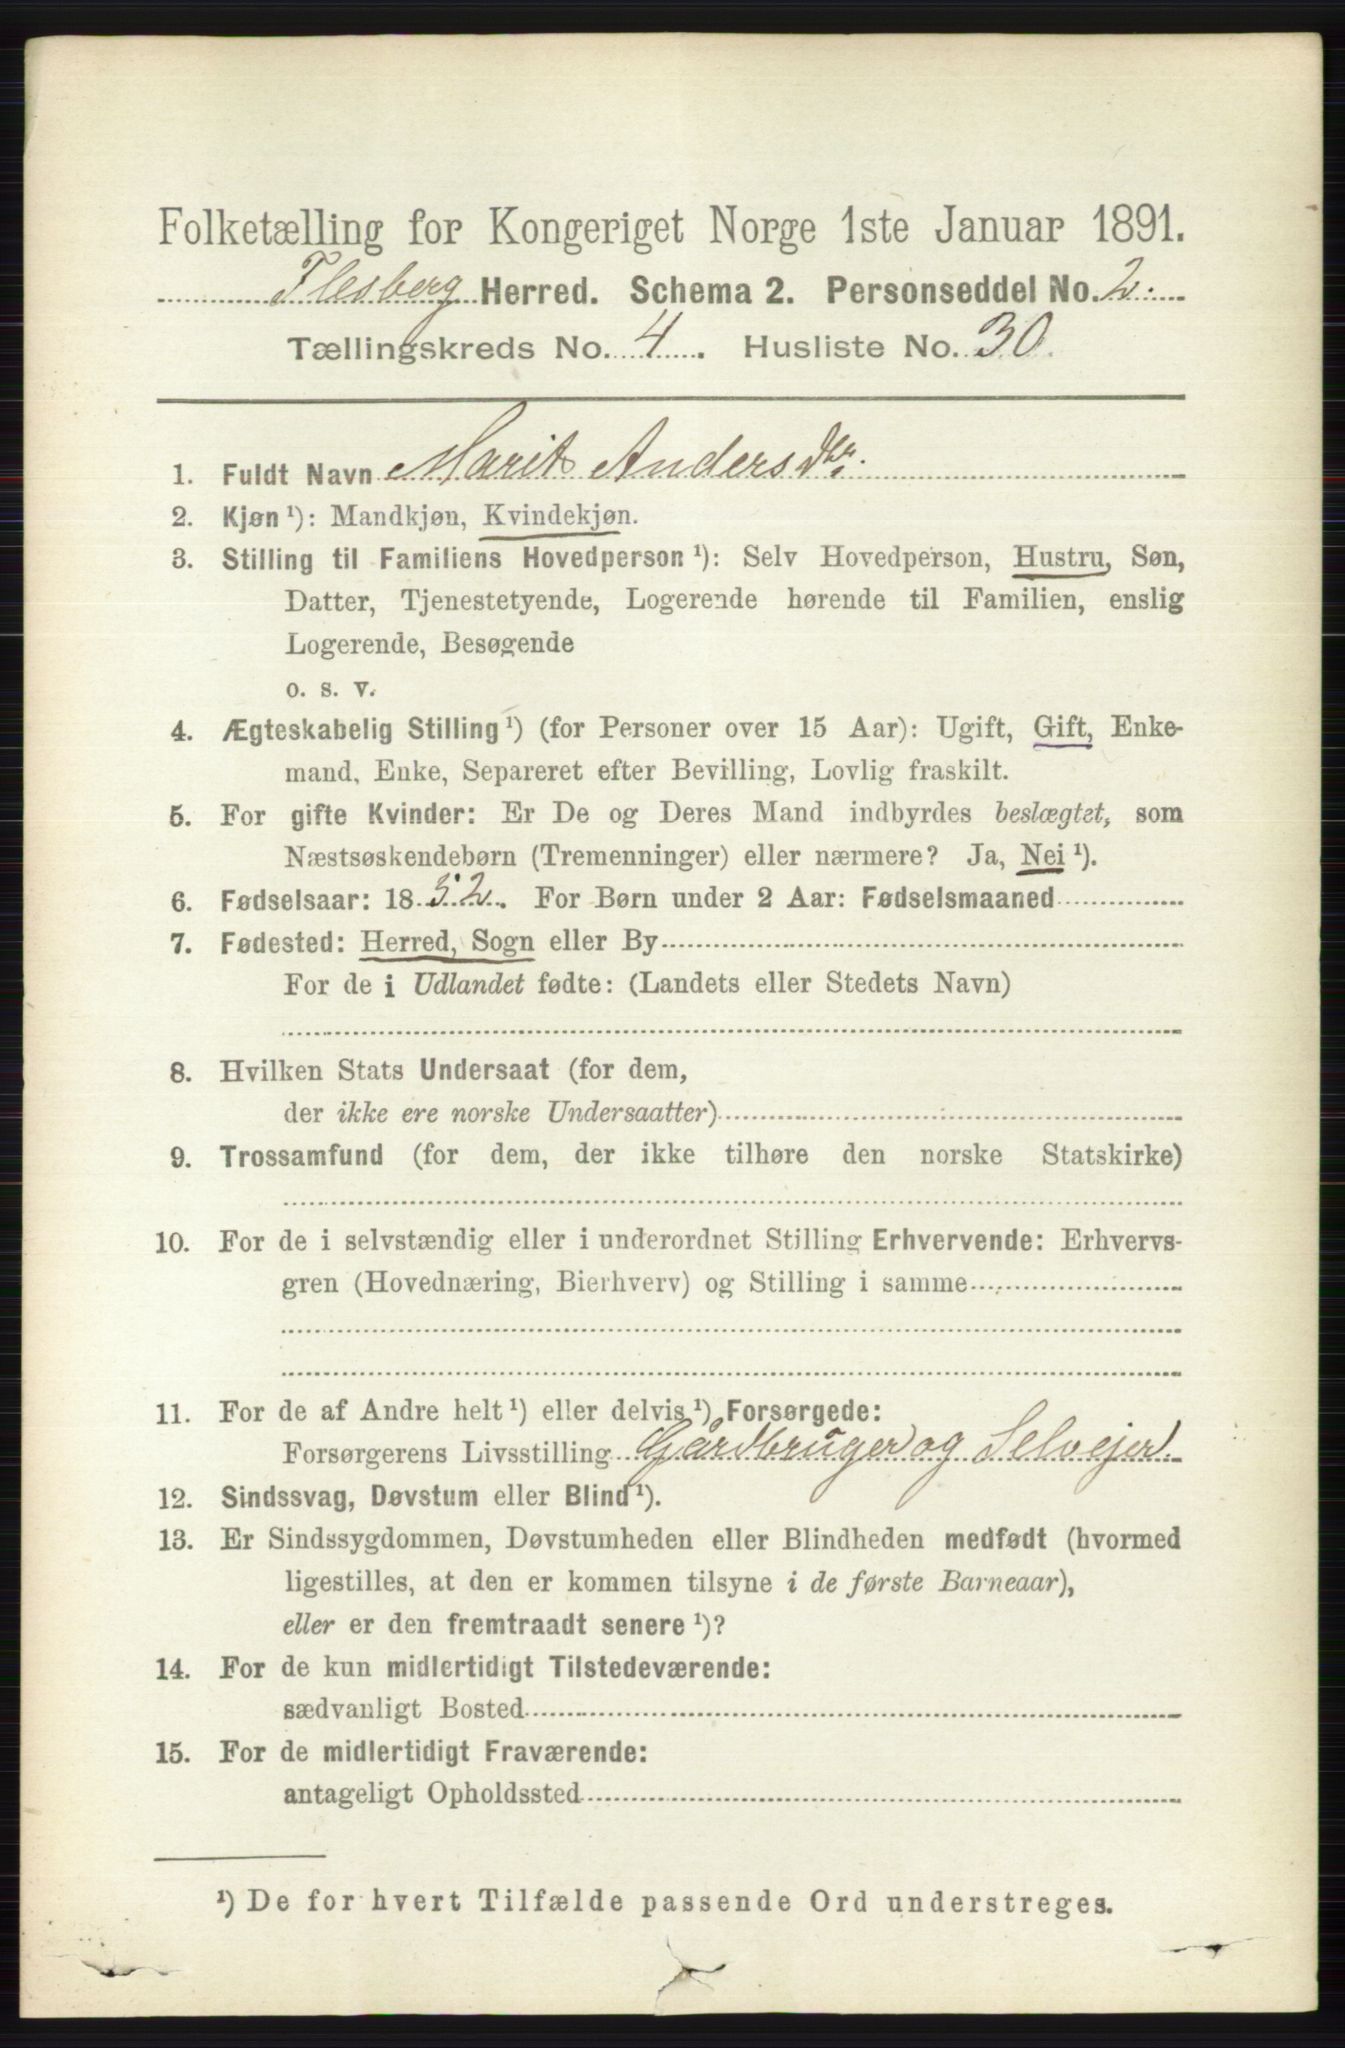 Folketælling for Kongeriget Norge 1ste Januar 1891.
Flesberg Herred. Schema 2. Personseddel No. 2.
Tællingskreds No. 4. Husliste No. 30.
1. Fuldt Navn Marit Andersdtr.
2. Kjøn¹): Mandkjøn, Kvindekjøn.
3. Stilling til Familiens Hovedperson¹): Selv Hovedperson, Hustru, Søn,
Datter, Tjenestetyende, Logerende hørende til Familien, enslig
Logerende, Besøgende
o. s. v.
4. Ægteskabelig Stilling¹) (for Personer over 15 Aar): Ugift, Gift, Enke-
mand, Enke, Separeret efter Bevilling, Lovlig fraskilt.
5. For gifte Kvinder: Er De og Deres Mand indbyrdes beslægtet, som
Næstsøskendebørn (Tremenninger) eller nærmere? Ja, Nei¹).
6. Fødselsaar: 1852. For Børn under 2 Aar: Fødselsmaaned
7. Fødested: Herred, Sogn eller By
For de i Udlandet fødte: (Landets eller Stedets Navn)
8. Hvilken Stats Undersaat (for dem,
der ikke ere norske Undersaatter)
9. Trossamfund (for dem, der ikke tilhøre den norske Statskirke)
10. For de i selvstændig eller i underordnet Stilling Erhvervende: Erhvervs-
gren (Hovednæring, Bierhverv) og Stilling i samme
11. For de af Andre helt¹) eller delvis¹) Forsørgede:
Forsørgerens Livsstilling Gårdbruger og Selvejer
12. Sindssvag, Døvstum eller Blind¹).
13. Er Sindssygdommen, Døvstumheden eller Blindheden medfødt (hvormed
ligestilles, at den er kommen tilsyne i de første Barneaar),
eller er den fremtraadt senere¹)?
14. For de kun midlertidigt Tilstedeværende:
sædvanligt Bosted
15. For de midlertidigt Fraværende:
antageligt Opholdssted
¹) De for hvert Tilfælde passende Ord understreges.